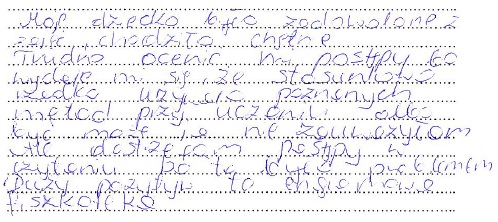 Moje dziecko było zadowolone z
zajęć, chodziło chętnie
Trudno ocenić mi postępy bo
wydaje mi się, że stosunkowo
rzadko używa poznanych
metod przy uczeniu - albo
być może ja nie zauważyłam
ale dostrzegam postępy w
czytaniu bo to było problemem
Duży pozytyw to angielskie